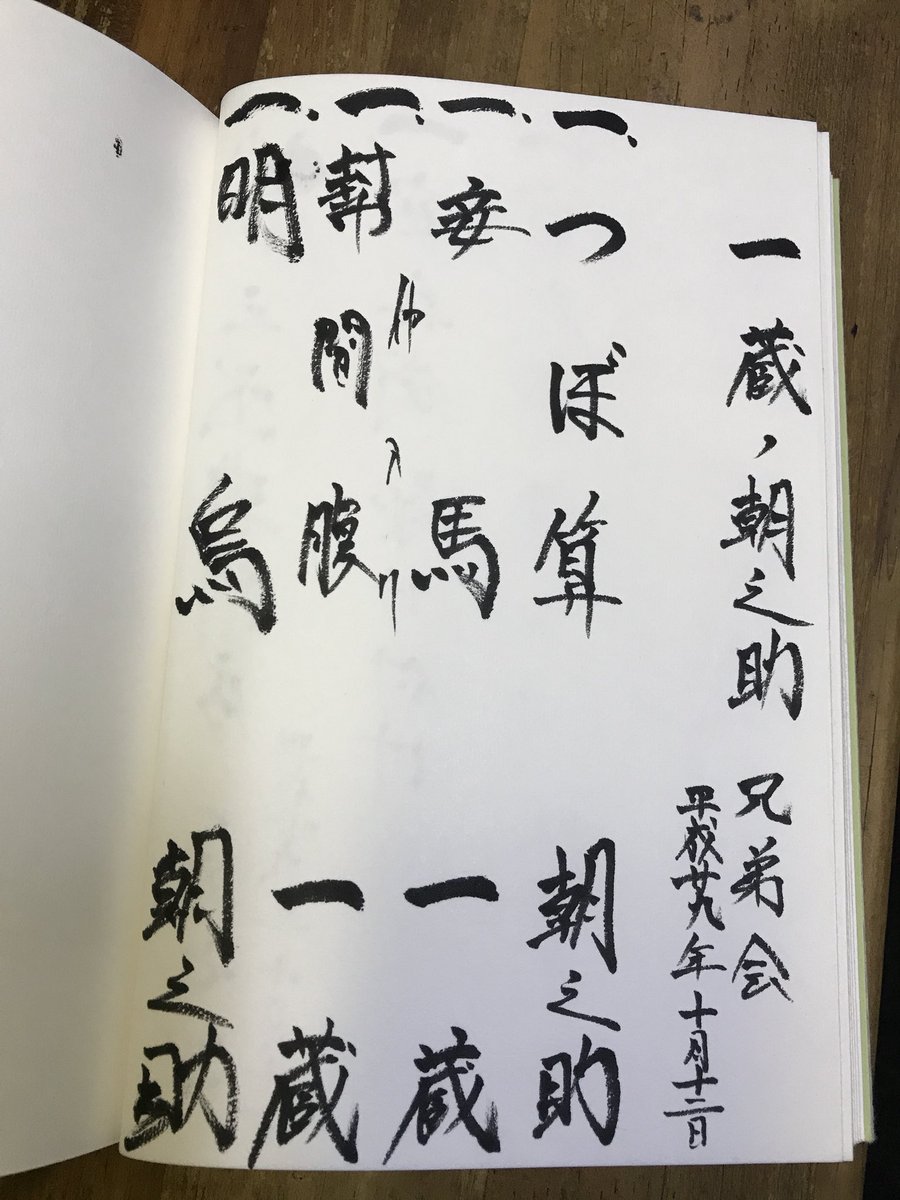 一蔵、朝之助 兄弟会
平成廿九年十月十二日
一、つぼ算 朝之助
一、妾馬 一蔵
仲入り
一、幇間腹 一蔵
一、明烏 朝之助